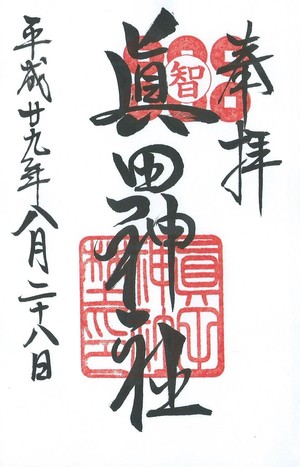 奉拝
智
眞田神社
平成廿九年八月二十八日